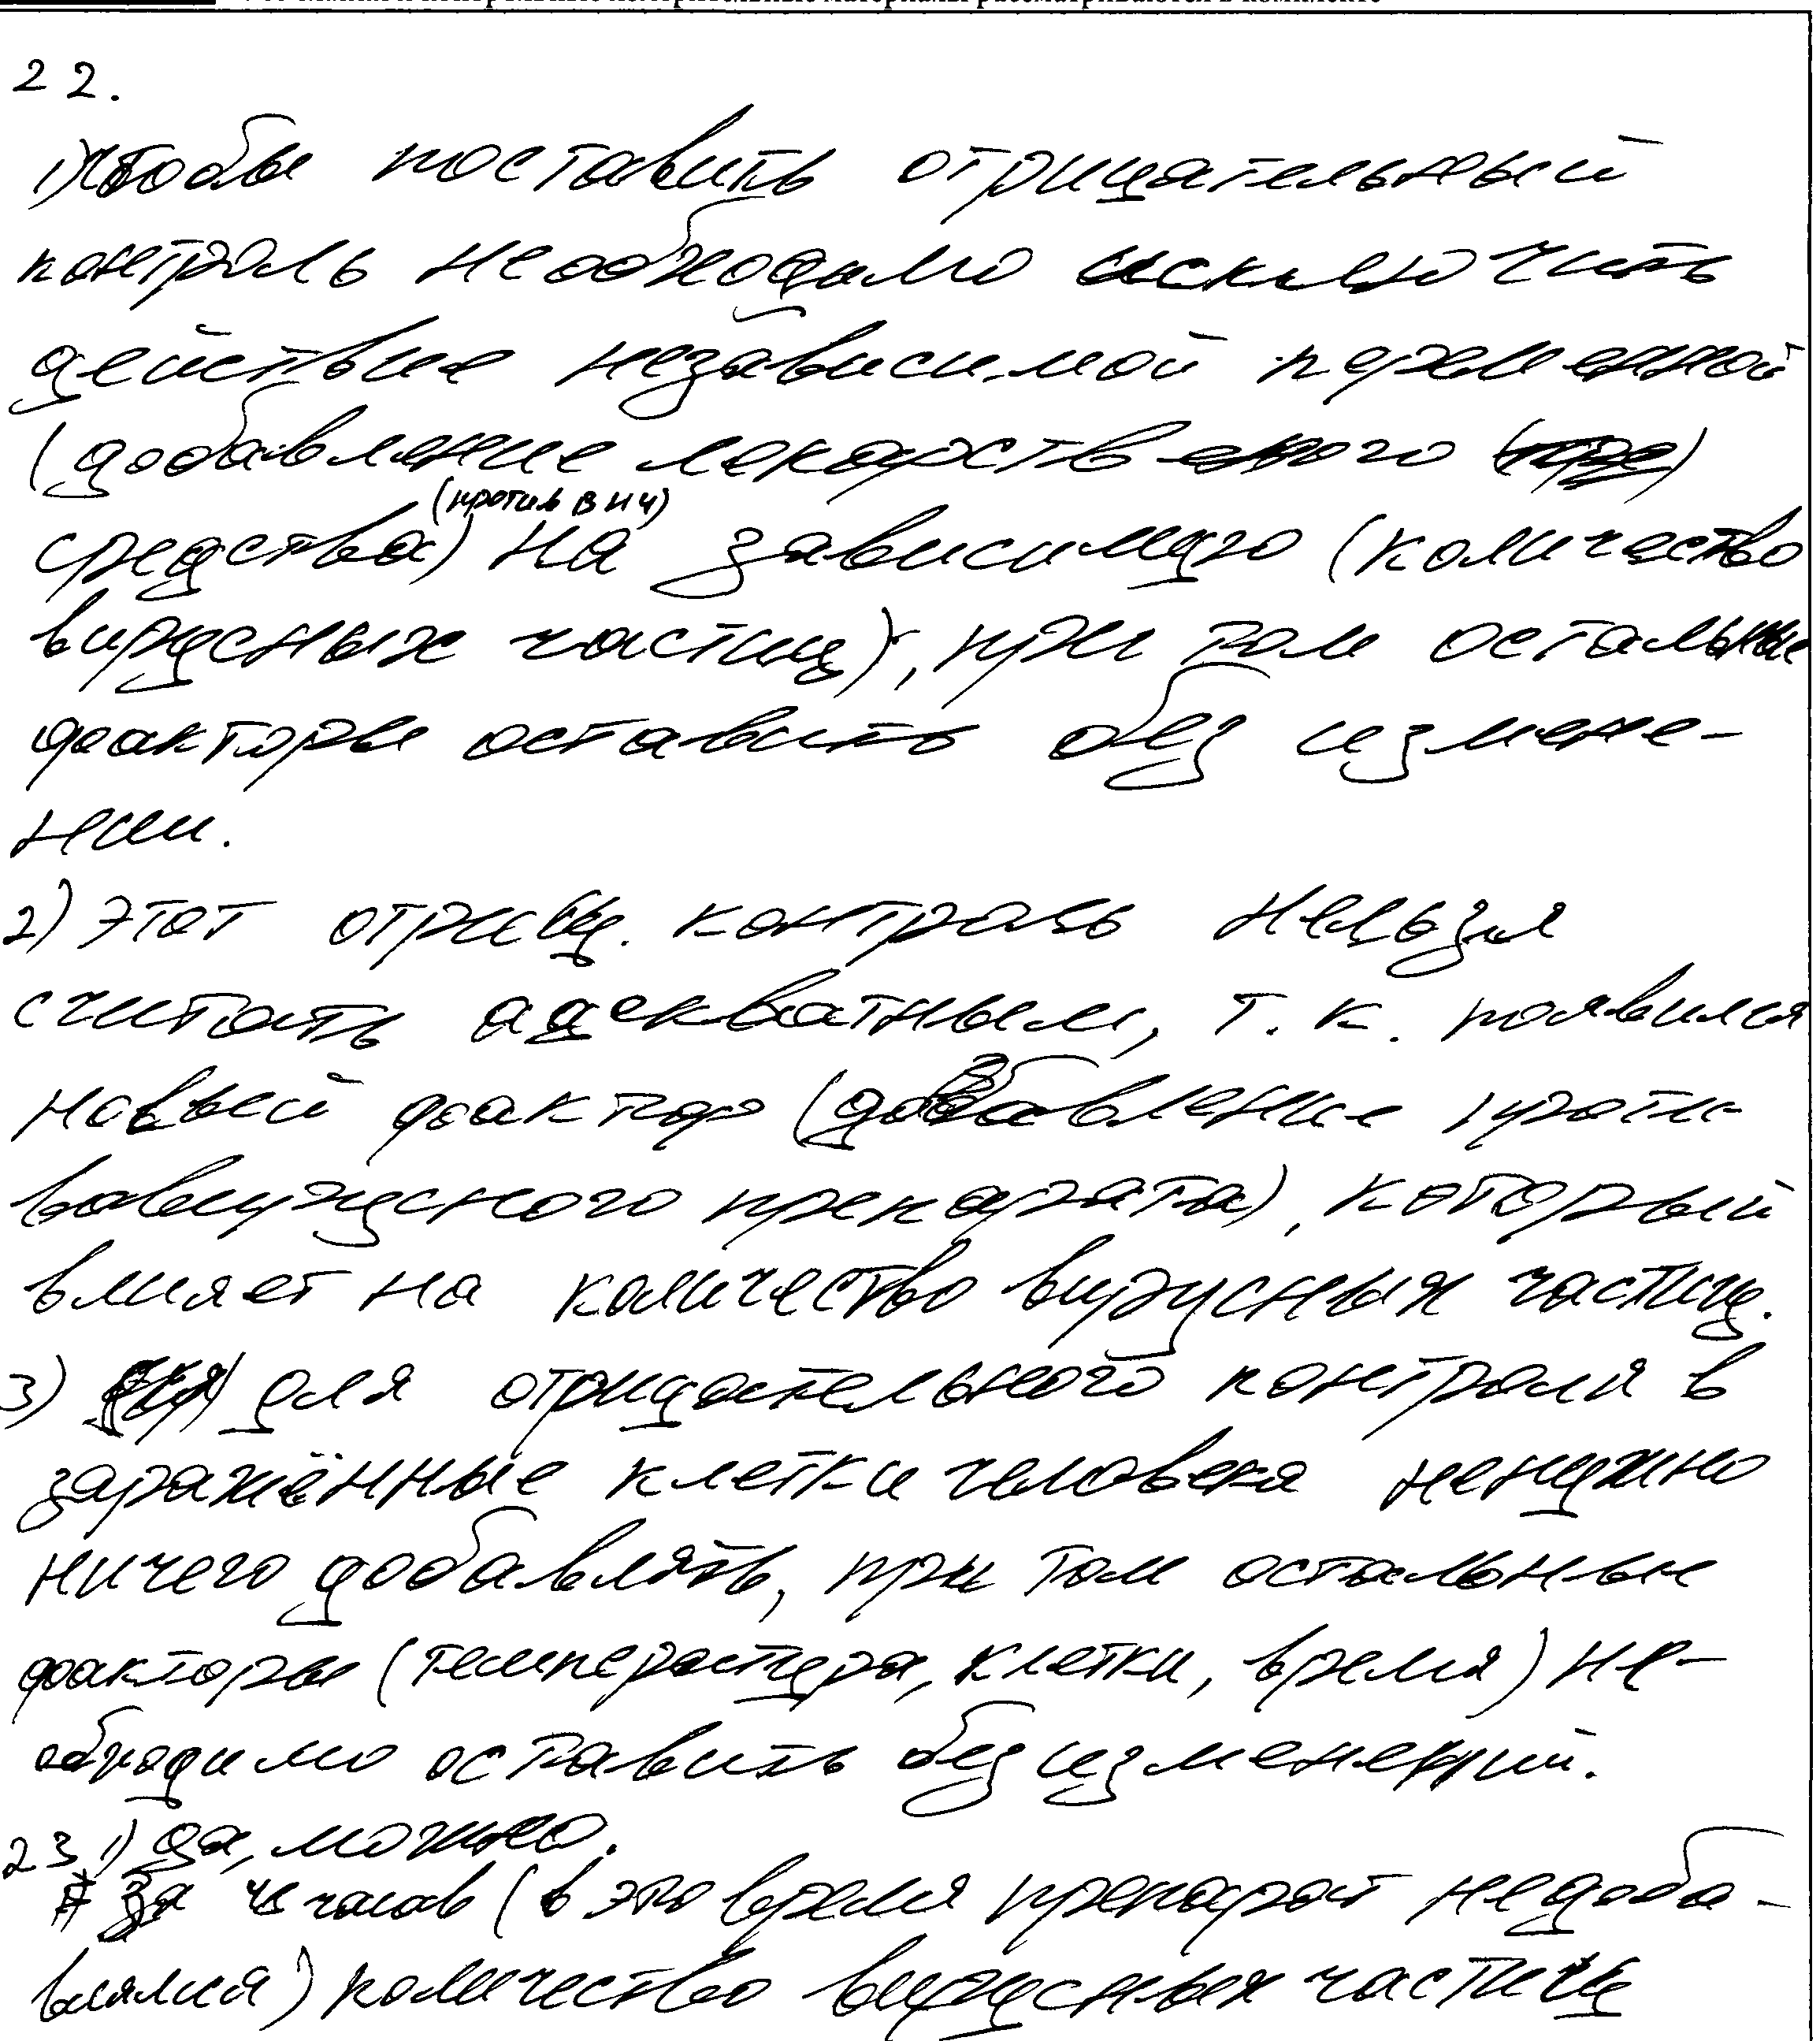 22.
1) чтобы поставить отрицательный
контроль необходимо исключить
действие независимой переменной
(добавление лекарственого
(против ВИЧ)
средства) на зависимую (количество
вирусных частиц), при том остальные
факторы оставить без измене-
нии.
2) Этот отриц. контроль нельзя
считать адекватным, т.к. появился
новый фактор (добавление проти
вовирусного препарата), который
влияет на количество вирусных частиц.
3) для отрицательного контроля в
заражённые клетки человека ненужно
ничего добавлять, при том остальные
факторы (температура, клетки, время) не-
обходимо оставить без изменений.
23 1) да, можно.
За 4 часов (в это время препарат недоба-
влялся) количество вирусных частиц